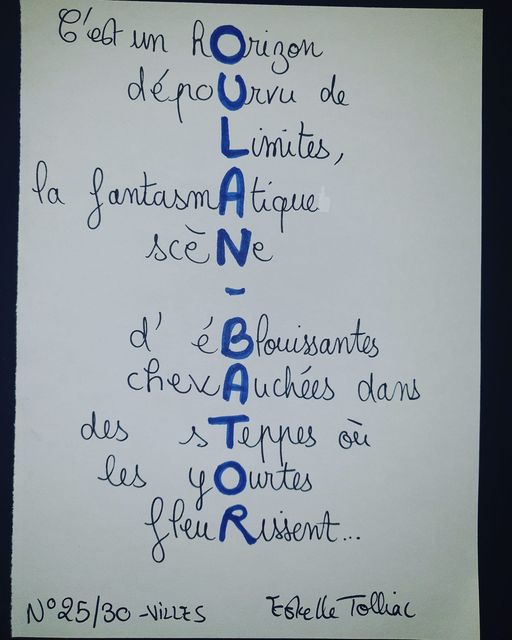 C'est un hOrizon
dépoUrvu de
Limites,
la fantasmAtique
scèNe
-
d' éBlouissantes
chevAuchées dans
des sTeppes où
les yOurtes
fleuRissent...
N°25/30 - VILLES Estelle Tolliac